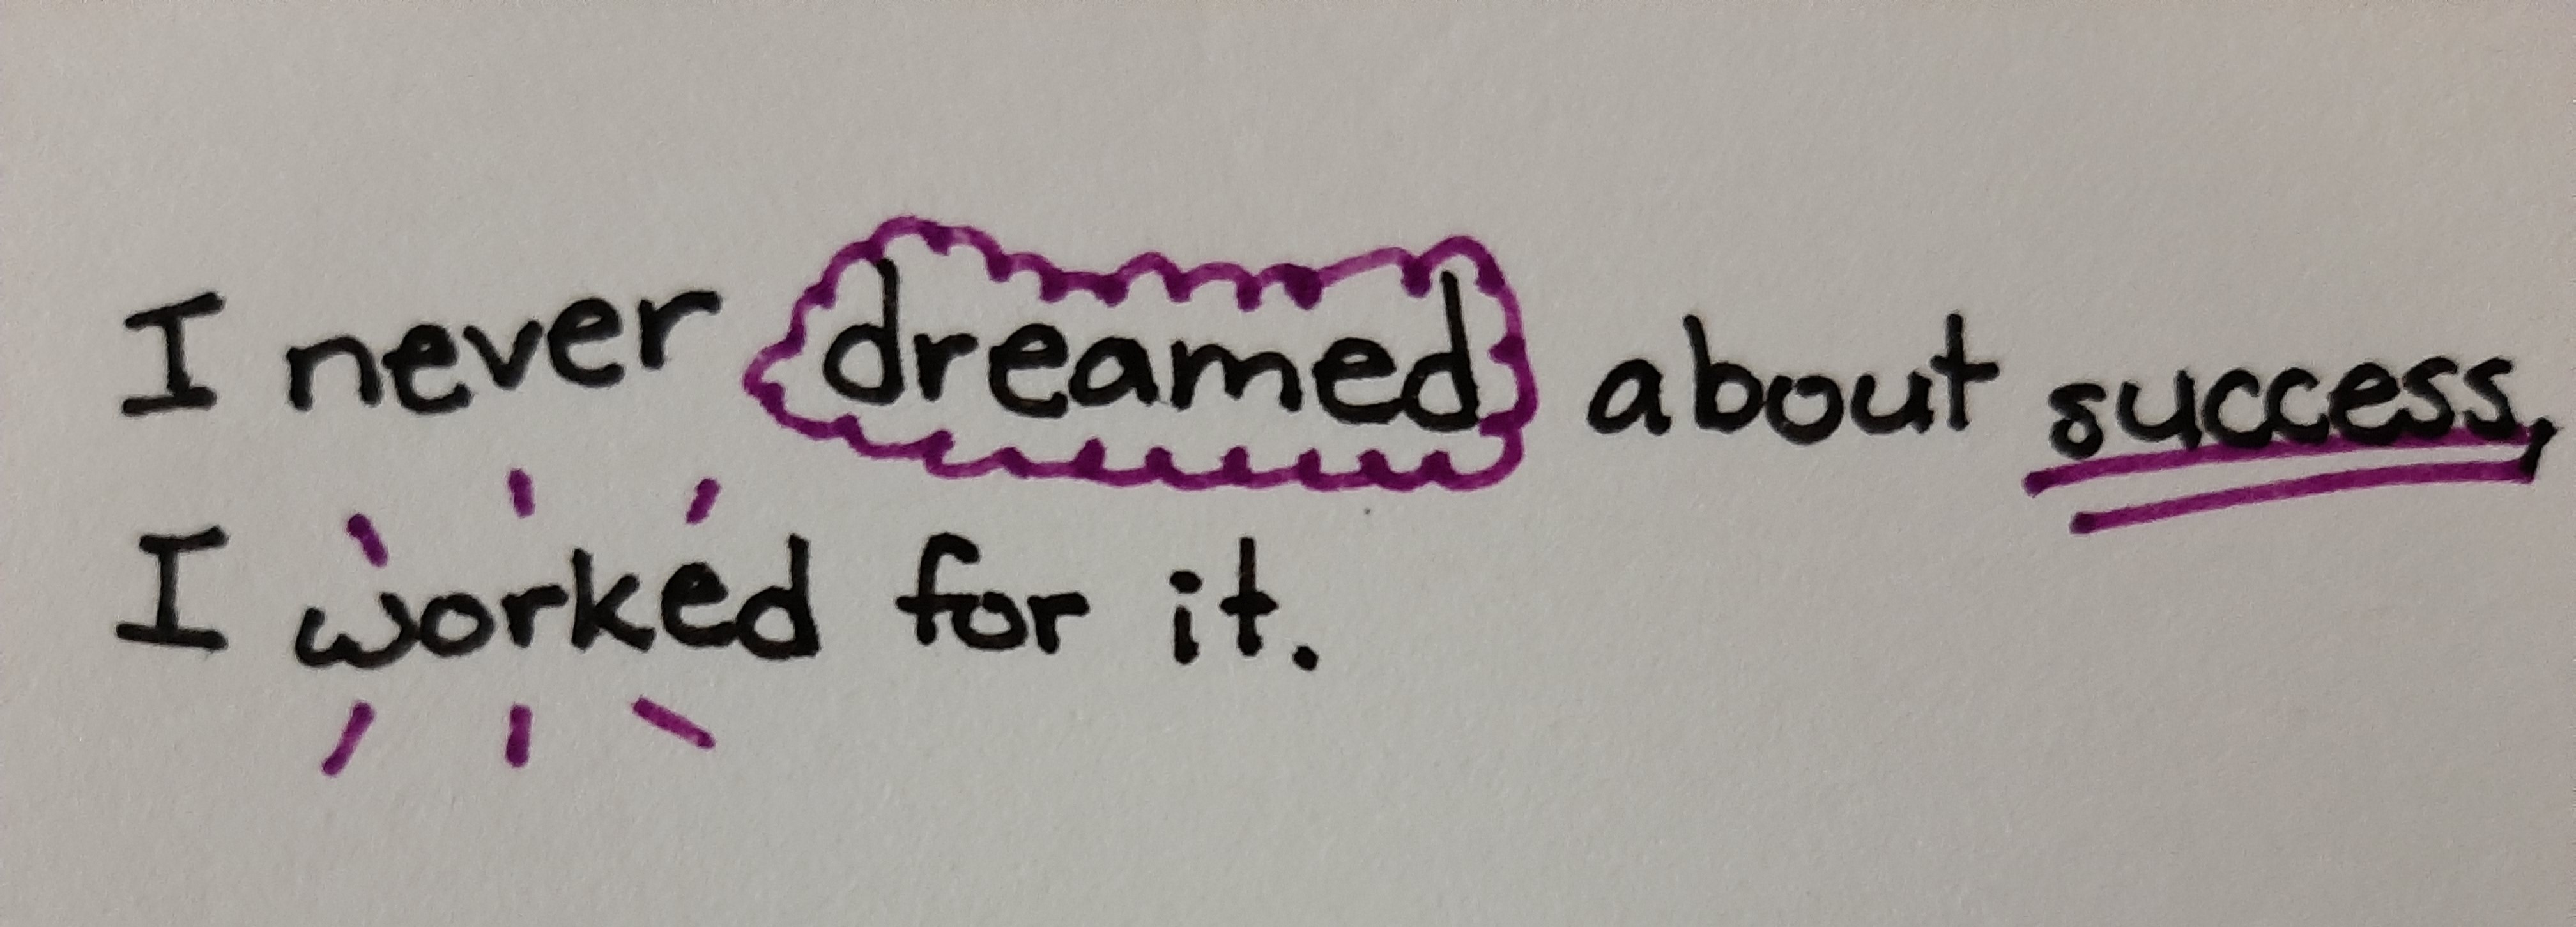 I never dreamed about success,
I worked for it.